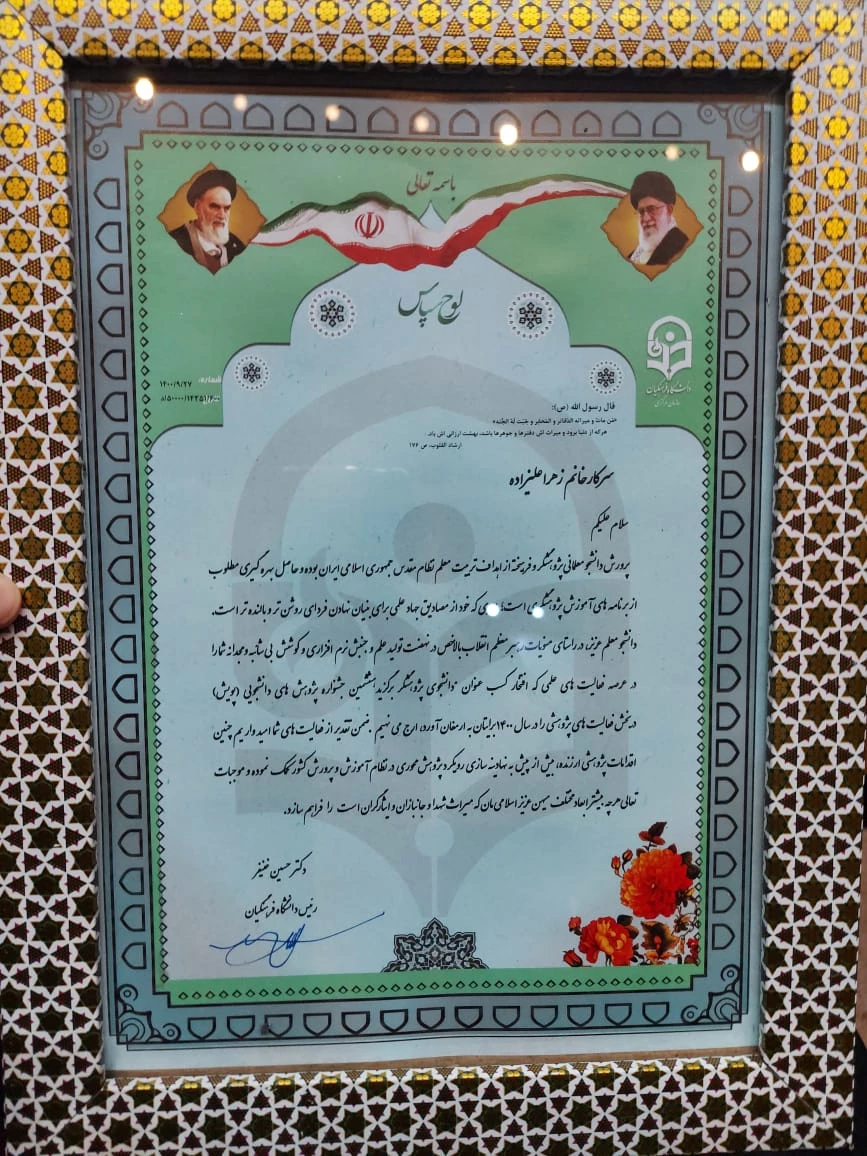 باسمه تعالی
لوح سپاس
شماره: ۱۴۰۰/۹/۲۷
۵۰۰۰۰/۱۴۲۵۱/
دانشگاه فرهنگیان
سازمان مرکزی
قال رسول الله (ص):
«مَن ماتَ و میراثه الدّفاتر و المَحابِر و جَبَت لَهُ الجَنَّه»
هرکه از دنیا برود و میراث اش دفترها و جوهرها باشد، بهشت ارزانی اش باد.
ارشاد القلوب، ص ۱۷۶
سرکار خانم زهرا علیزاده
سلام علیکم
پرورش دانشجو معلمانی پژوهشگر و فریخته از اهداف تربیت معلم نظام مقدس جمهوری اسلامی ایران بوده و حاصل بهره گیری مطلوب
از برنامه های آموزش پژوهشگری است؛ که خود از مصادیق جهاد علمی برای بنیان نهادن فردای روشن تر و بالنده تر است.
دانشجو معلم عزیز، در راستای منویات رهبر معظم انقلاب بالاخص در نهضت تولید علم و جنبش نرم افزاری و کوشش بی شائبه و مجدانه شما را
در عرصه فعالیت های علمی که افتخار کسب عنوان "دانشجوی پژوهشگر برگزیده ششمین جشنواره پژوهش های دانشجویی (پویش)
در بخش فعالیت های پژوهشی را در سال ۱۴۰۰ برایتان به ارمغان آورد، ارج می نهیم. ضمن تقدیر از فعالیت های شما امید واریم چنین
اقدامات پژوهشی ارزنده، بیش از پیش به نهادینه سازی رویکرد پژوهش محوری در نظام آموزش و پرورش کشور کمک نموده و موجبات
تعالی هرچه بیشتر ابعاد مختلف میهن عزیز اسلامی مان که میراث شهدا و جانبازان و ایثارگران است را فراهم سازد.
دکتر حسین خنیفر
رئیس دانشگاه فرهنگیان